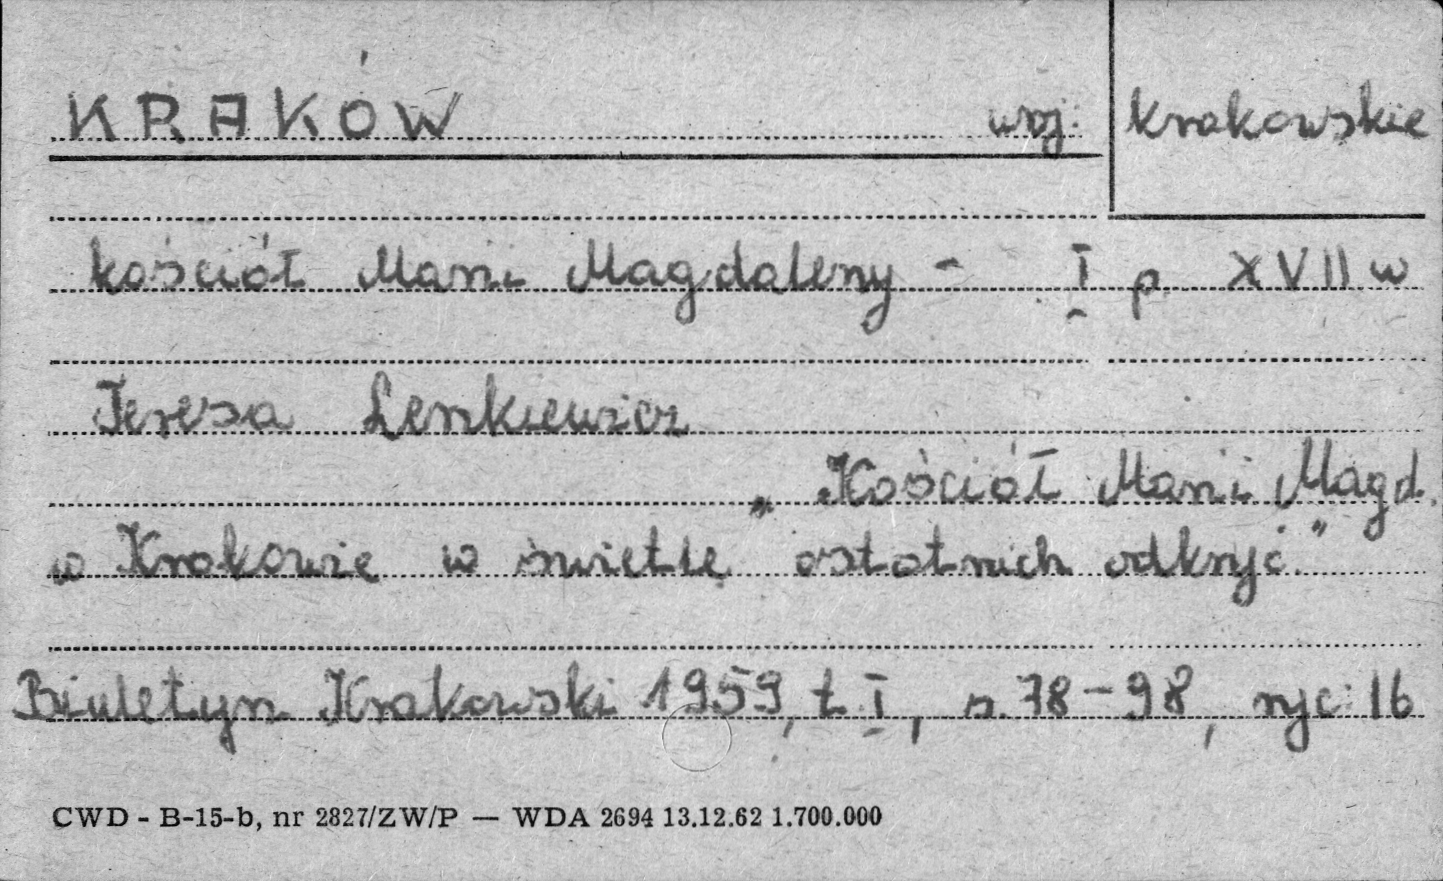 KRAKÓW woj. krakowskie
kościół Marii Magdaleny - I p. XVII w
Teresa Lenkiewicz
„Kościół Marii Magd.
w Krakowie w świetle ostatnich odkryć"
Biuletyn Krakowski 1959, t. I, s. 78-98, ryc. 16
CWD - B-15-b, nr 2827/ZW/P — WDA 2694 13.12.62 1.700.000